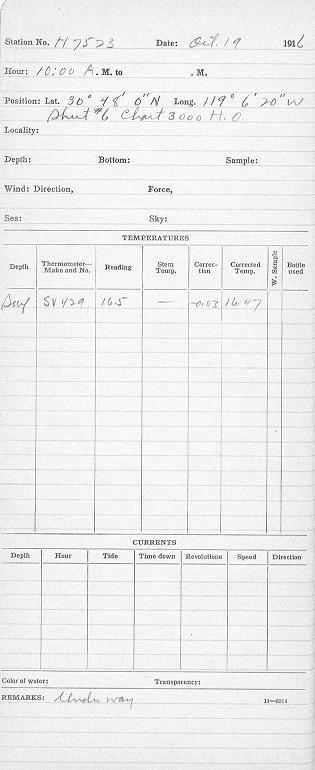 Station No. H 7523 Date: Oct. 19 1916
Hour: 10:00 A. M. to . M.
Position: Lat. 30° 48' 0" N Long. 119° 6' 20" W
Sheet #6 Chart 3000 H.O.
Locality:
Depth: Bottom: Sample:
Wind: Direction, Force,
Sea: Sky:
TEMPERATURES
Depth Thermometer— Make and No. Reading Stem Temp. Correc- tion Corrected Temp. W. Sample Bottle used
Surf SV 429 16.5 — -0.03 16.47
CURRENTS
Depth Hour Tide Time down Revolutions Speed Direction
Color of water: Transparency:
REMARKS: Under way 11—5214